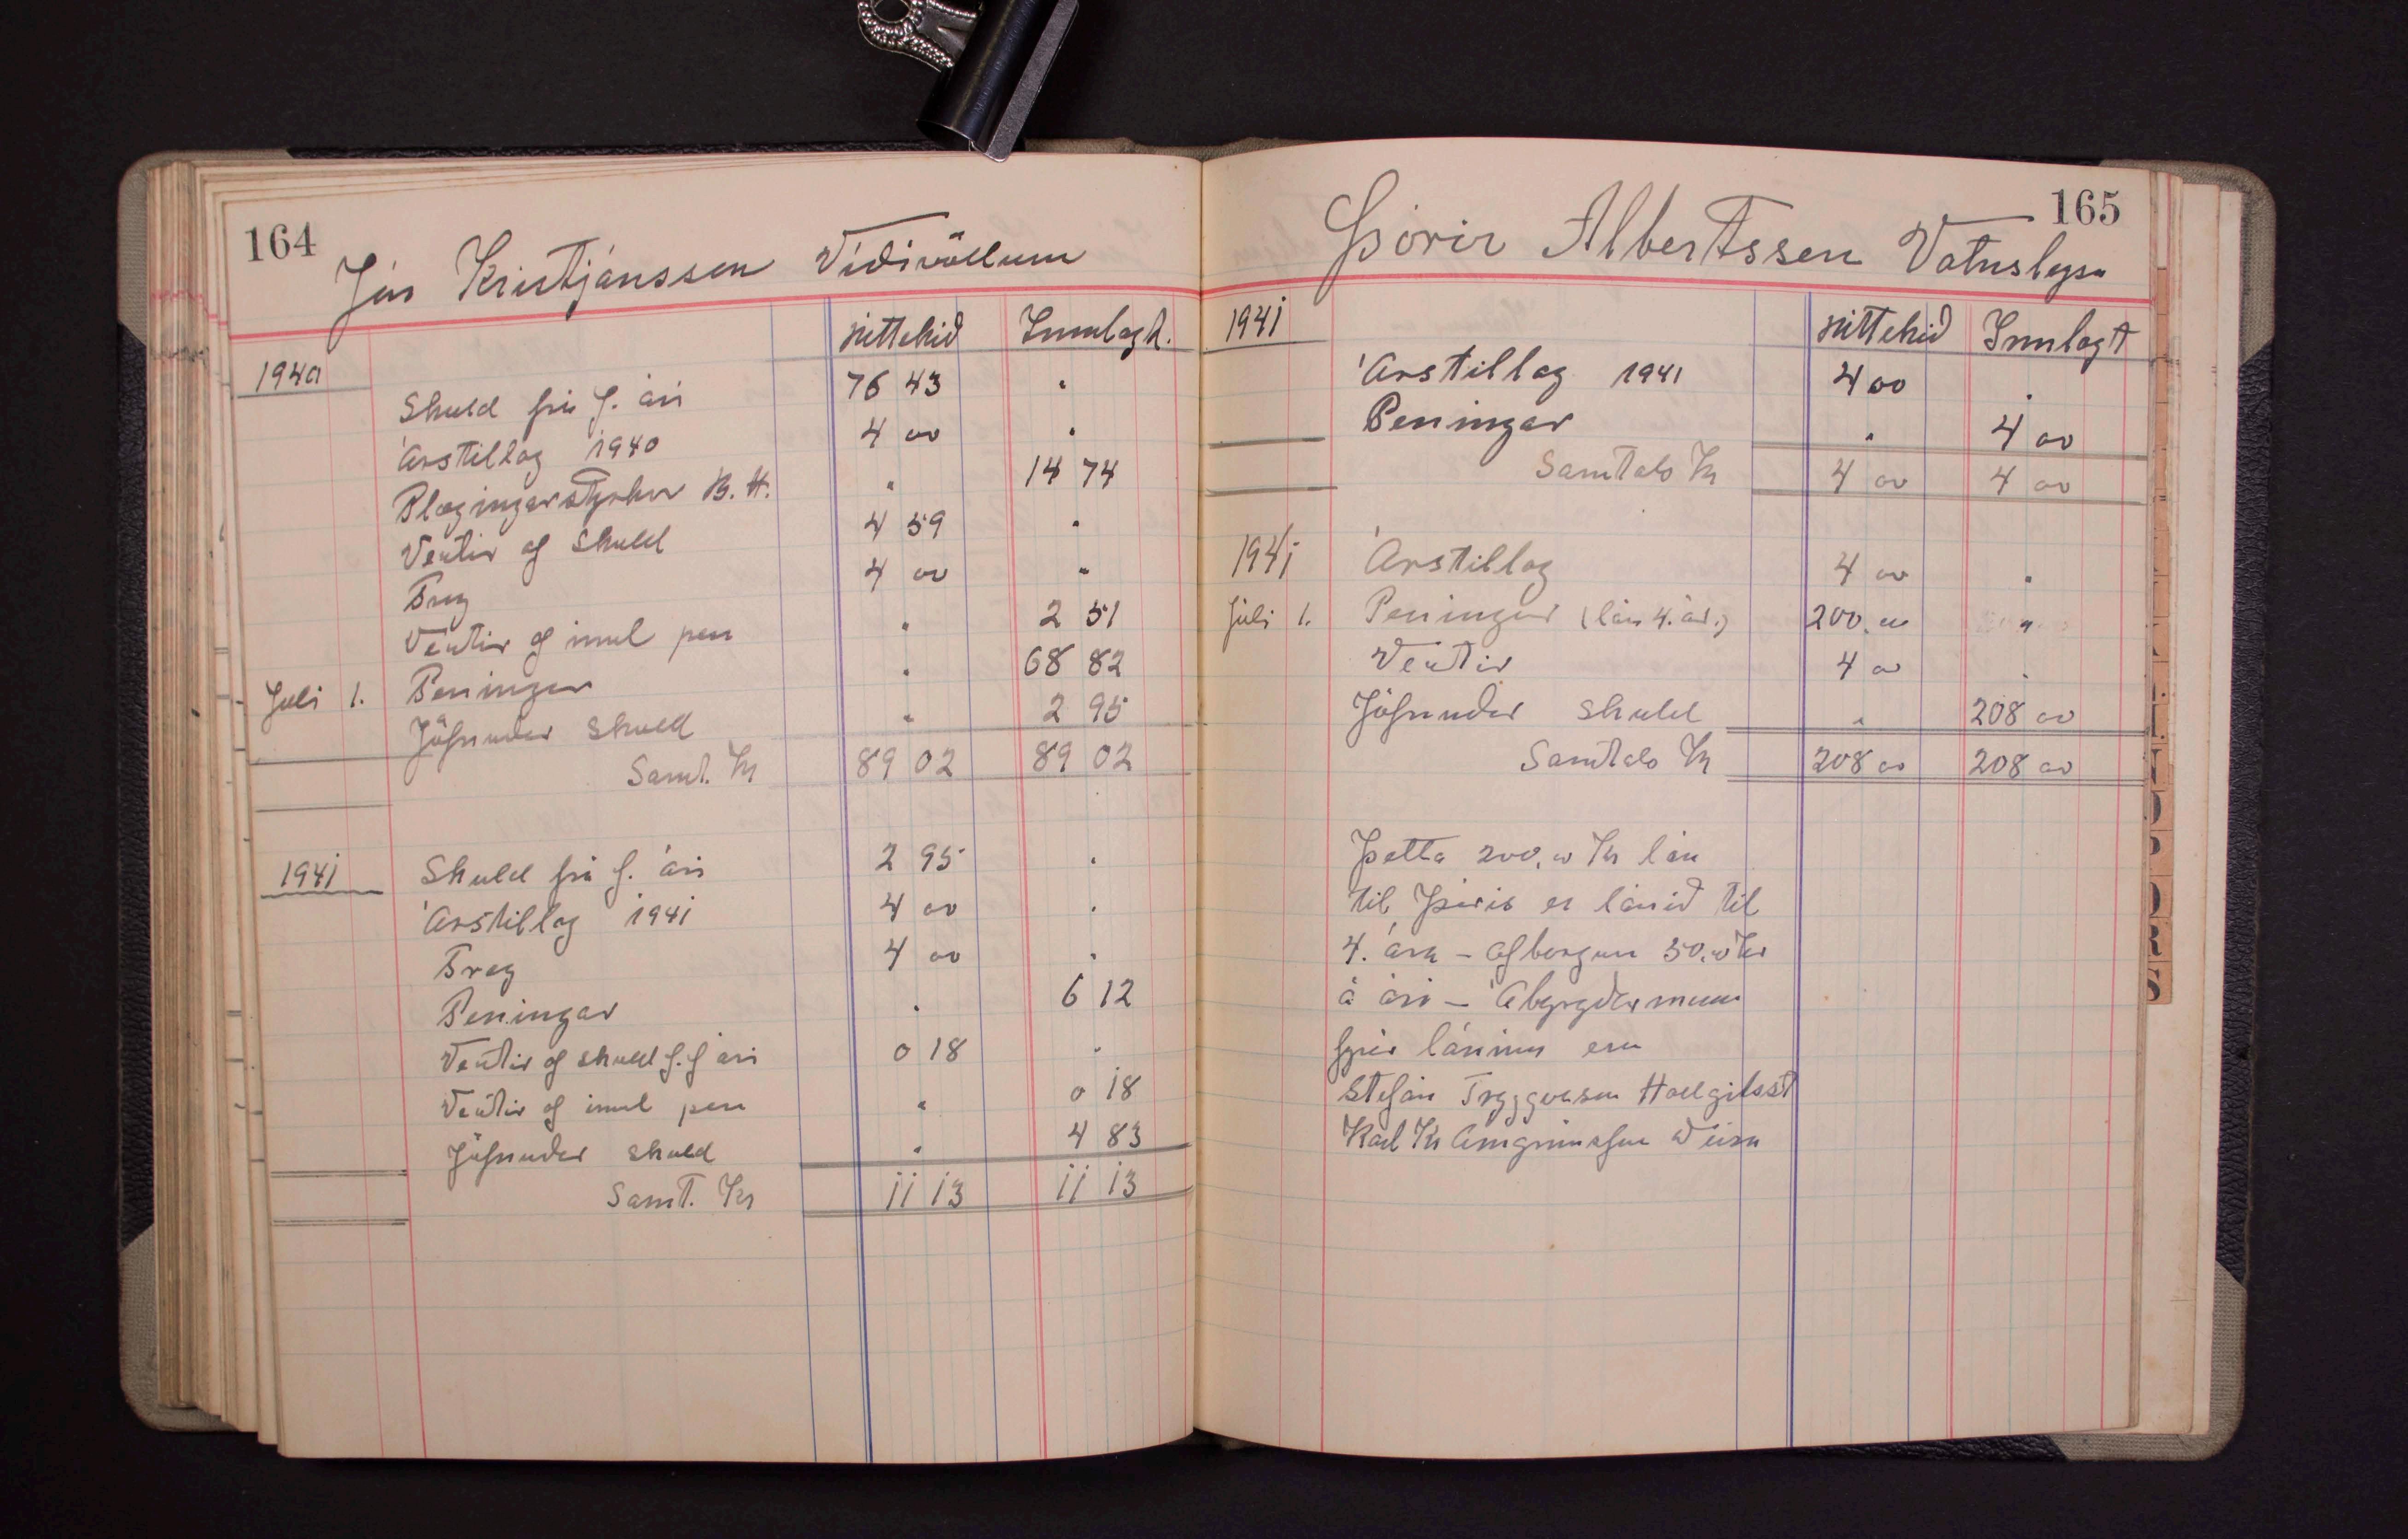 164
Jón Kristjánsson Víðivöllum
Úttekið Innlagt.
1940
Skuld frá f. ári 76 43 "
Árstillag 1940 4 00 "
Plægingarstyrkur B. H. " 14 74
Vextir af skuld 4 59 "
4 00 "
Vextir af innl pen " 2 51
Júlí 1. Peningar " 68 82
Jöfnuður skuld " 2 95
Samt. Kr 89 02 89 02
1941 Skuld frá f. ári 2 95 "
Árstillag 1941 4 00 "
4 00 "
Peningar " 6 12
Vextir af skuld f. f ári 0 18 "
Vextir af innl pen " 0 18
Jöfnuður skuld " 4 83
Samt. Kr 11 13 11 13
165
Þórir Albertsson Vatnsleysu
1941 Úttekið Innlagt
Árstillag 1941 4 00 "
Peningar " 4 00
Samtals Kr 4 00 4 00
1941 Árstillag 4 00 "
Júlí 1. Peningar (lán 4. ár.) 200,00 "
Vextir 4 00 "
Jöfnuður skuld " 208 00
Samtals Kr 208 00 208 00
Þetta 200,00 Kr lán
til Þóris er lánið til
4. ára - afborgun 50,00 Kr
á ári - Ábyrgðarmenn
fyrir láninu eru
Stefán Tryggvason Hallgilsst
Karl Kr Arngrímsson Veisu